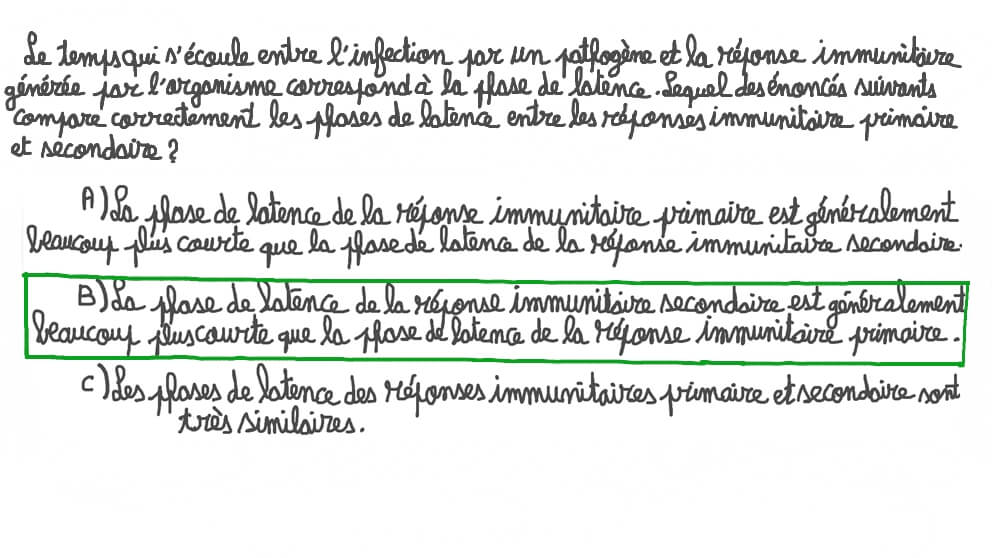 Le temps qui s'écoule entre l'infection par un pathogène et la réponse immunitaire
générée par l'organisme correspond à la phase de latence. Lequel des énoncés suivants
compare correctement les phases de latence entre les réponses immunitaire primaire
et secondaire ?
A) La phase de latence de la réponse immunitaire primaire est généralement
beaucoup plus courte que la phase de latence de la réponse immunitaire secondaire.
B) La phase de latence de la réponse immunitaire secondaire est généralement
beaucoup plus courte que la phase de latence de la réponse immunitaire primaire.
C) Les phases de latence des réponses immunitaires primaire et secondaire sont
très similaires.